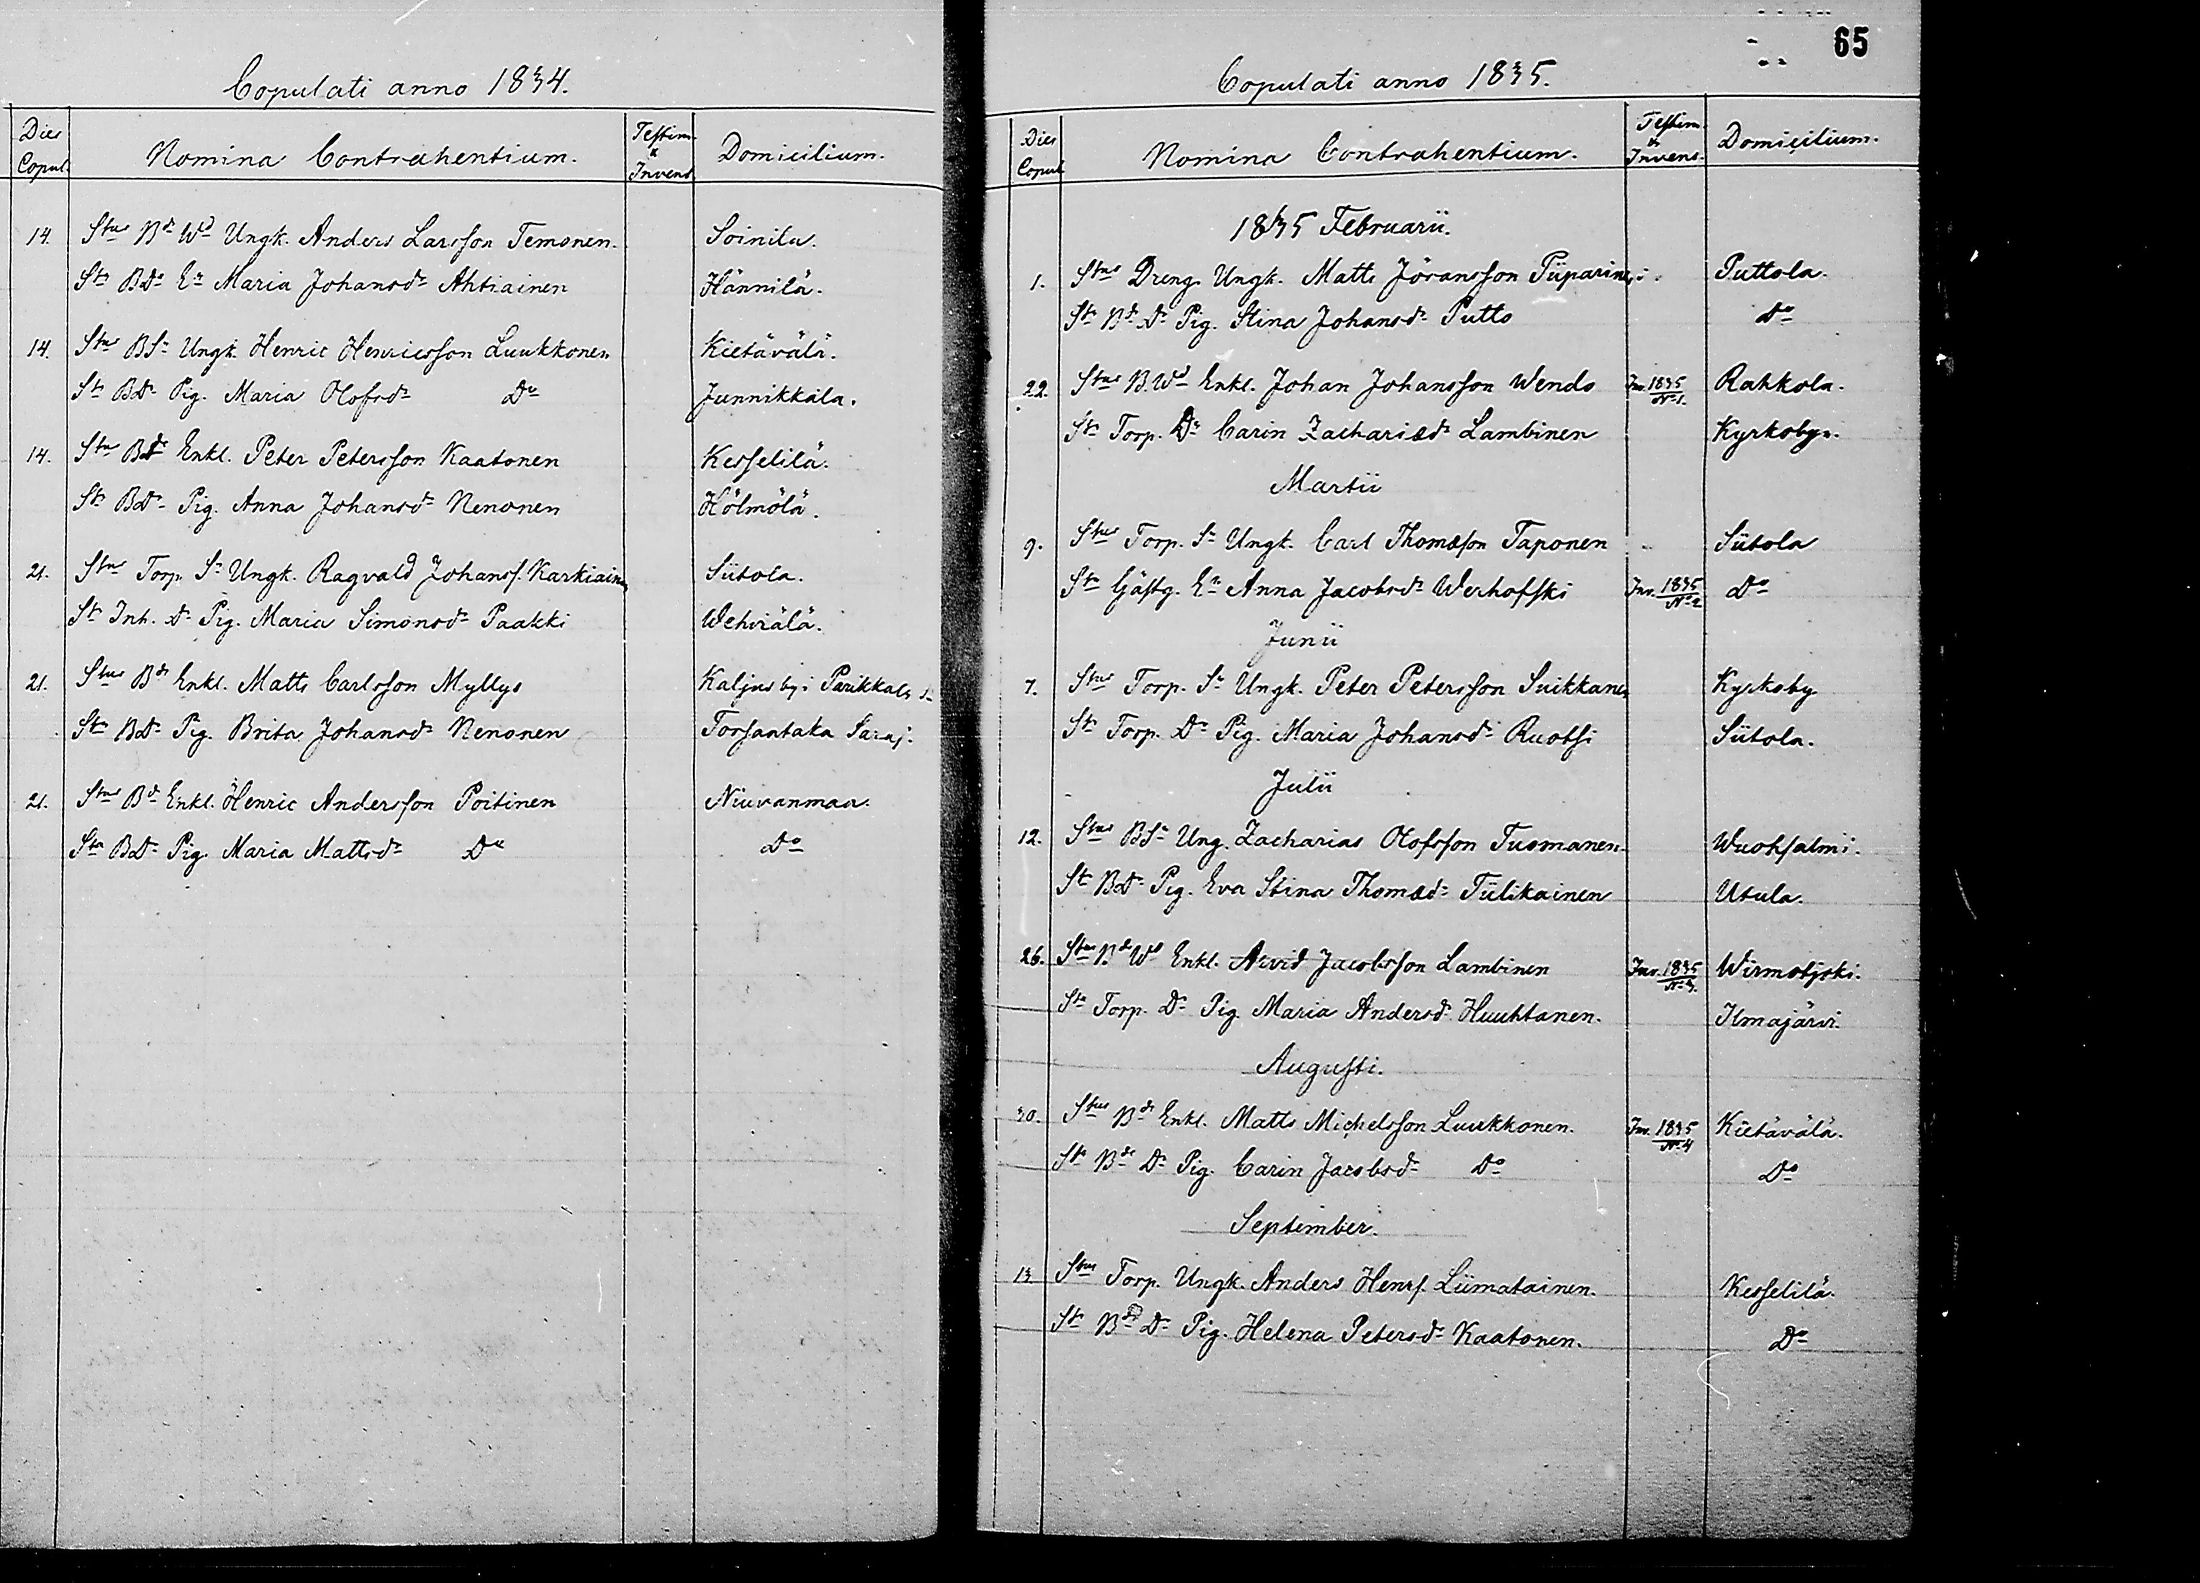 Copulati anno 1834.
Dies Copul. Nomina Contrahentium. Testim. & Invent. Domicilium.
14. Stus Bd Wd Ungk. Anders Larsson Temonen. Soinila.
Sta BDr En Maria Johansdr Ahtiainen Hännilä.
14. Stus BSn Ungk. Henric Henricsson Luukkonen Kietävälä.
Sta BDr Pig. Maria Olofsdr Do Junnikkala.
14. Stus Bde Enkl. Peter Petersson Kaatonen Kesselilä.
Sta BDr Pig. Anna Johansdr Nenonen Hölmölä.
21. Stus Torp. Sn Ungk. Ragvald Johanss. Karkiainen Siitola.
Sta Inh. Dr Pig. Maria Simonsdr Paakki Wehviälä.
21. Stus Bde Enkl. Matts Carlsson Myllys Kaljus by i Parikkala
Sta BDr Pig. Brita Johansdr Nenonen Torsantaka Saraj.
21. Stus Bde Enkl. Henric Andersson Poitinen Niuvanmaa.
Sta BDr Pig. Maria Mattsdr Do Do
65
Copulati anno 1835.
Dies Copul Nomina Contrahentium. Testim. & Invent. Domicilium.
1835 Februarii.
1. Stus Dreng. Ungk. Matts Jöransson Piiparinen Puttola.
Sta Bd Dr Pig. Stina Johansdr Putto Do
22. Stus B. Wd Enkl. Johan Johansson Wendo Inv. 1835 No 1. Rahkola.
Sta Torp. Dr Carin Zachariædr Lambinen Kyrkoby.
Martii
9. Stus Torp. Sn Ungk. Carl Thomæson Taponen Siitola
Sta Gästg. En Anna Jacobsdr Werhoffski Inv. 1835 No 2 Do
Junii
7. Stus Torp. Sn Ungk. Peter Petersson Suikkanen Kyrkoby
Sta Torp. Dr Pig. Maria Johansdr Ruotsi Siitola.
Julii
12. Stus BSn Ung. Zacharias Olofsson Tuomanen. Wuoksalmi.
Sta BDr Pig. Eva Stina Thomædr Tiilikainen Utula.
26. Stus Bde Wd Enkl. Arvid Jacobsson Lambinen Inv. 1835 No 3. Wirmotjoki.
Sta Torp. Dr Pig Maria Andersdr Huuhtanen. Ilmajärvi.
Augusti.
30. Stus Bde Enkl. Matts Michelsson Luukkonen. Inv. 1835 No 4 Kietävälä.
Sta Bde Dr Pig. Carin Jacobsdr Do Do
September.
13 Stus Torp. Ungk. Anders Henrs. Liimatainen. Kesselilä.
Sta Bde Dr Pig. Helena Petersdr Kaatonen. Do